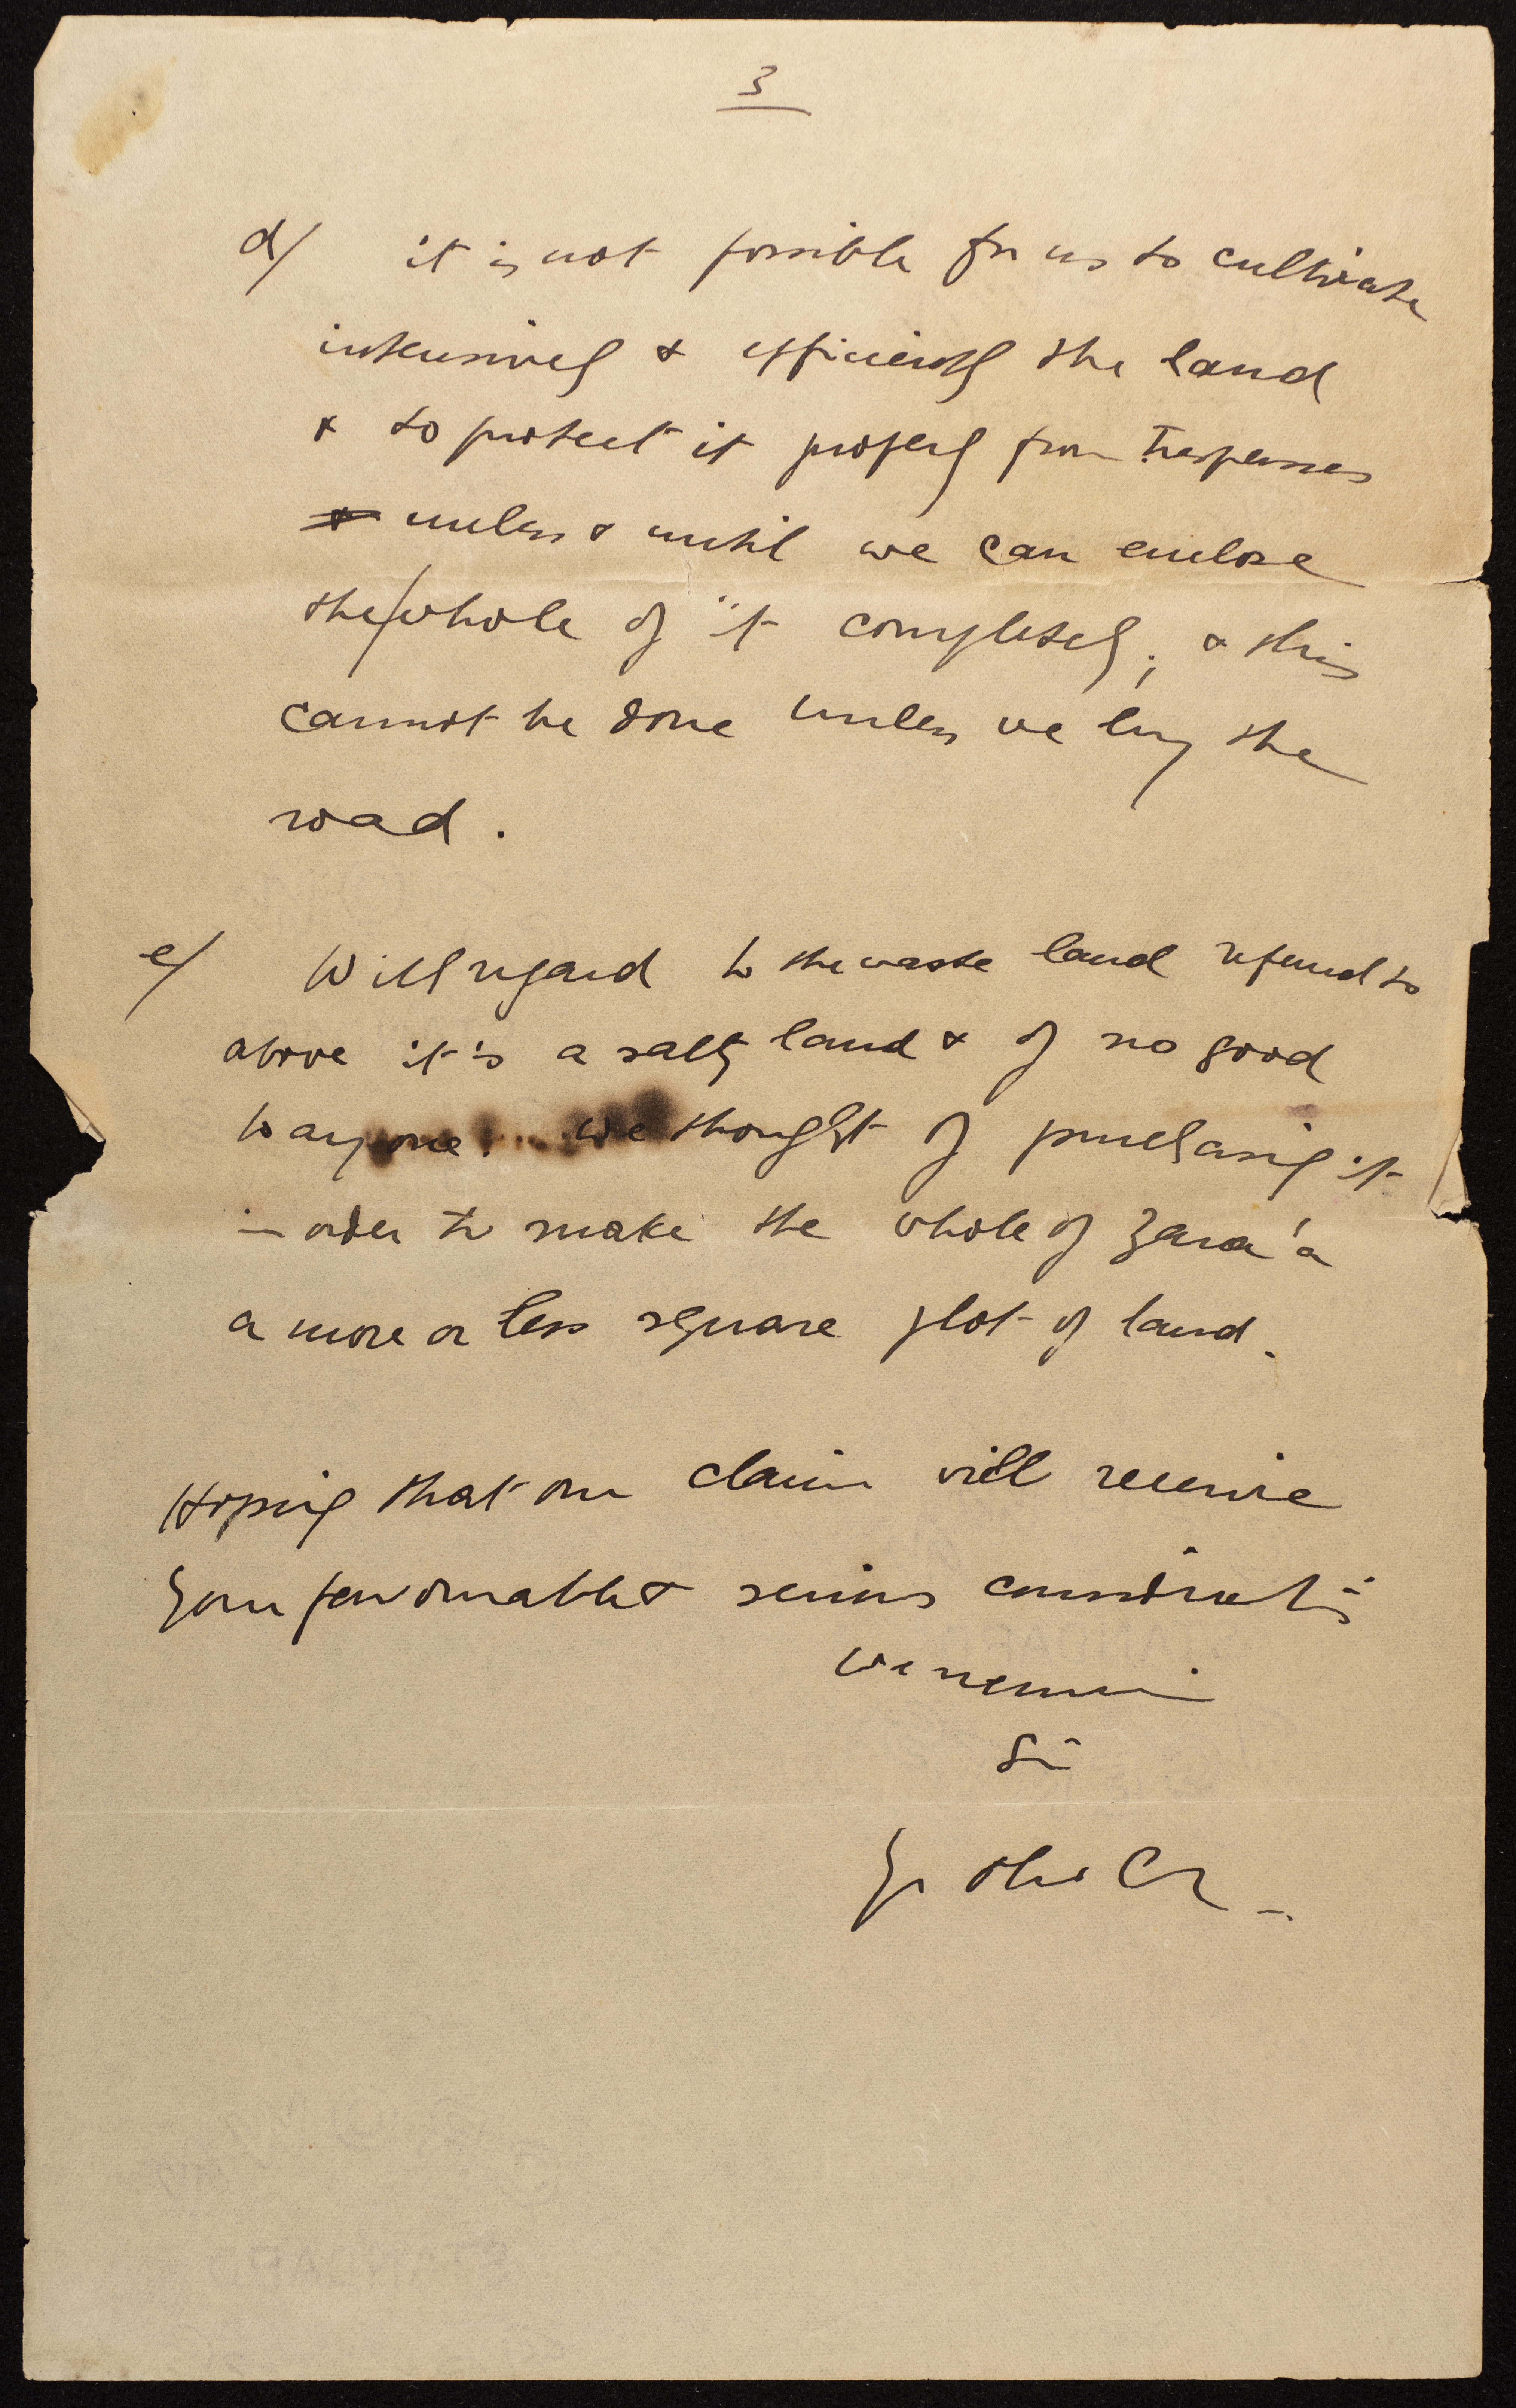 3
d/ it is not possible for us to cultivate
intensively & efficiently the land
& to protect it properly from trespasses
& unless & until we can enclose
the whole of it completely; & this
cannot be done unless we buy the
road.
e/ With regard to the waste land referred to
above it is a salty land & of no good
to anyone. We thought of purchasing it
in order to make the whole of Zara'a
a more or less square plot of land.
Hoping that our claim will receive
your favourable & serious consideration
we remain
Sir